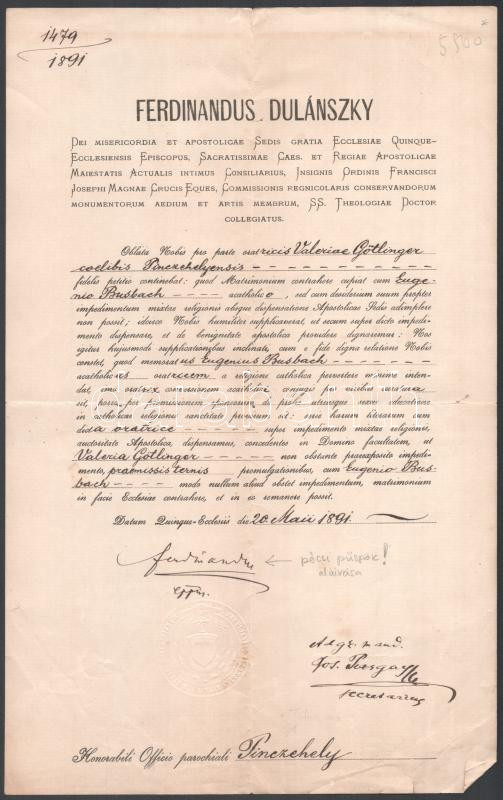 1479
1891
5500
FERDINANDUS DULÁNSZKY
DEI MISERICORDIA ET APOSTOLICAE SEDIS GRATIA ECCLESIAE QUINQUE-
ECCLESIENSIS EPISCOPUS, SACRATISSIMAE CAES. ET REGIAE APOSTOLICAE
MAIESTATIS ACTUALIS INTIMUS CONSILIARIUS, INSIGNIS ORDINIS FRANCISCI
JOSEPHI MAGNAE CRUCIS EQUES, COMMISSIONIS REGNICOLARIS CONSERVANDORUM
MONUMENTORUM AEDIUM ET ARTIS MEMBRUM, SS. THEOLOGIAE DOCTOR
COLLEGIATUS.
Oblata Nobis pro parte oratricis Valeriae Götlinger
coelibis Pinczehelyensis
fidelis petitio continebat: quod Matrimonium contrahere cupiat cum Euge-
nio Busbach acatholico, sed cum desiderium suum propter
impedimentum mixtae religionis absque dispensatione Apostolicae Sedis adimplere
non possit; idcirco Nobis humiliter supplicaverat, ut secum super dicto impedi-
mento dispensare, et de benignitate apostolica providere dignaremur: Nos
igitur hujusmodi supplicationibus inclinati, cum e fide digna relatione Nobis
constet, quod memoratus Eugenius Busbach
acatholicus oratricem a religione catholica pervertere minime inten-
dat, imo oratrix conversionem acatholici conjugis pro viribus curatura
sit, porro per promissionem educatione
in catholicae religionis sanctitate provisum sit: serie harum literarum cum
dicta oratrice super impedimento mixtae religionis,
auctoritate Apostolica, dispensamus, concedentes in Domino facultatem, ut
Valeria Götlinger non obstante praeexposito impedi-
mento, praemissis ternis promulgationibus, cum Eugenio Bus-
bach modo nullum aliud obstet impedimentum, matrimonium
in facie Ecclesiae contrahere, et in eo remanere possit.
Datum Quinque-Ecclesiis die 20 Maii 1891.
Ferdinandus ← pécsi püspök!
aláírása
eppus.
Jos.
secretarius
Honorabili Officio parochiali Pinczehely